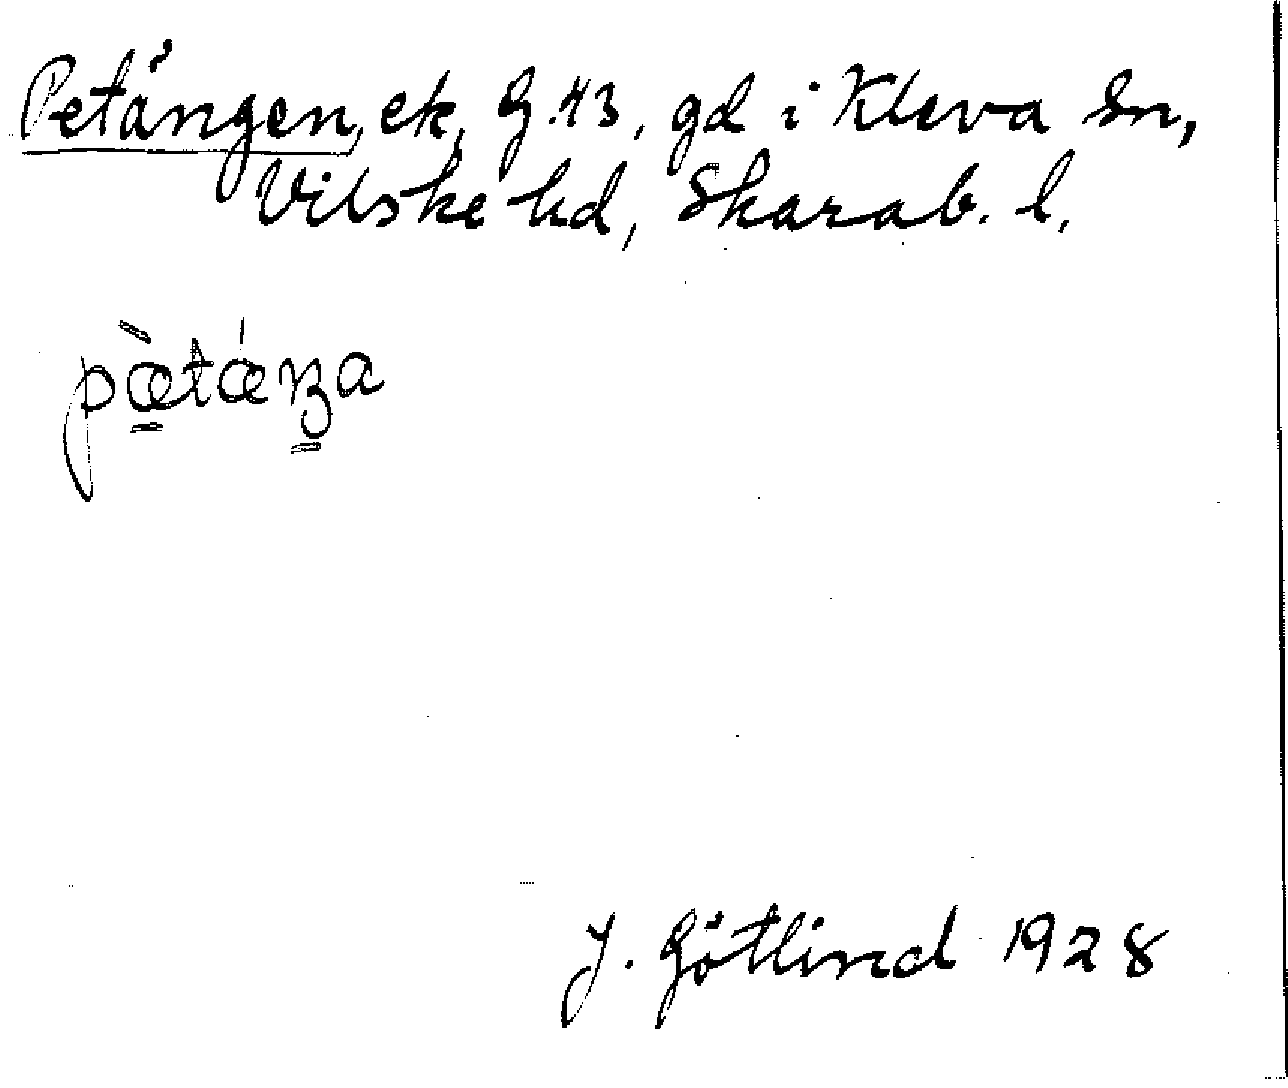 Petängen, ek, G.43, gd i Kleva sn,
Vilske hd, Skarab. l.
pæ̀tǽŋa
J. Götlind 1928